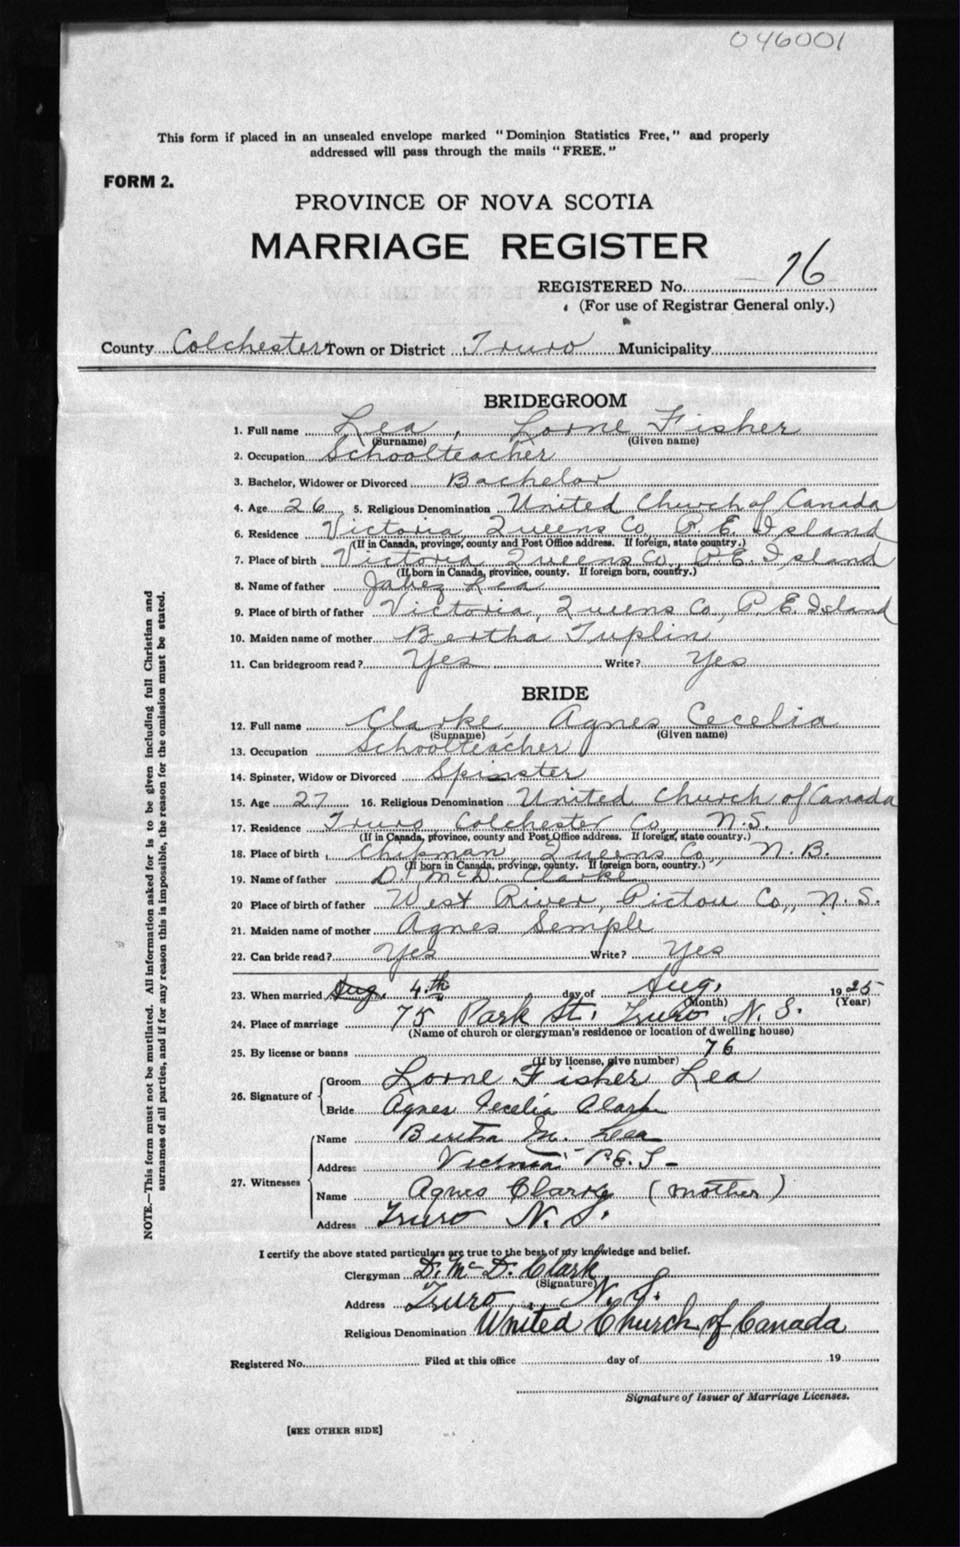 046001
This form if placed in an unsealed envelope marked "Dominion Statistics Free," and properly
addressed will pass through the mails "FREE."
FORM 2.
PROVINCE OF NOVA SCOTIA
MARRIAGE REGISTER
REGISTERED No. 76
(For use of Registrar General only.)
County Colchester Town or District Truro Municipality
BRIDEGROOM
1. Full name Lea, Lorne Fisher
(Surname) (Given name)
2. Occupation Schoolteacher
3. Bachelor, Widower or Divorced Bachelor
4. Age 26 5. Religious Denomination United Church of Canada
6. Residence Victoria, Queens Co, P.E. Island
(If in Canada, province, county and Post Office address. If foreign, state country.)
7. Place of birth Victoria Queens Co., P.E. Island
(If born in Canada, province, county. If foreign born, country.)
8. Name of father Jabez Lea
9. Place of birth of father Victoria, Queens Co, P.E. Island
10. Maiden name of mother Bertha Tuplin
11. Can bridegroom read? Yes Write? Yes
BRIDE
12. Full name Clarke, Agnes Cecelia
(Surname) (Given name)
13. Occupation Schoolteacher
14. Spinster, Widow or Divorced Spinster
15. Age 27 16. Religious Denomination United Church of Canada
17. Residence Truro Colchester Co, N.S.
(If in Canada, province, county and Post Office address. If foreign, state country.)
18. Place of birth Chipman, Queens Co., N.B.
(If born in Canada, province, county. If foreign born, country.)
19. Name of father D. McD. Clarke
20 Place of birth of father West River, Pictou Co., N.S.
21. Maiden name of mother Agnes Semple
22. Can bride read? Yes Write? Yes
23. When married Aug. 4th day of Aug. 1925
(Month) (Year)
24. Place of marriage 75 Park St. Truro N.S.
(Name of church or clergyman's residence or location of dwelling house)
25. By license or banns 76
(If by license, give number)
26. Signature of Groom Lorne Fisher Lea
Bride Agnes Cecelia Clark
27. Witnesses Name Bertha M. Lea
Address Victoria P.E.I.
Name Agnes Clark (mother)
Address Truro N.S.
I certify the above stated particulars are true to the best of my knowledge and belief.
Clergyman D. McD. Clark
(Signature)
Address Truro, N.S.
Religious Denomination United Church of Canada
Registered No. Filed at this office day of 19
Signature of Issuer of Marriage Licenses.
[SEE OTHER SIDE]
NOTE.—This form must not be mutilated. All information asked for is to be given including full Christian and
surnames of all parties, and if for any reason this is impossible, the reason for the omission must be stated.